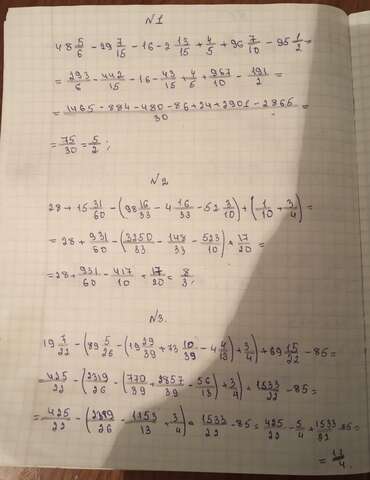 N1
48 5/6 - 29 7/15 - 16 - 2 13/15 + 4/5 + 96 7/10 - 95 1/2 =
= 293/6 - 442/15 - 16 - 43/15 + 4/5 + 967/10 - 191/2 =
= (1465 - 884 - 480 - 86 + 24 + 2901 - 2865)/30 =
= 75/30 = 5/2;
N2
28 + 15 31/60 - (98 16/33 - 4 16/33 - 52 3/10) + (1/10 + 3/4) =
= 28 + 931/60 - (3250/33 - 148/33 - 523/10) + 17/20 =
= 28 + 931/60 - 417/10 + 17/20 = 8/3;
N3.
19 7/22 - (89 5/26 - (19 29/39 + 73 10/39 - 4 4/13) + 3/4) + 69 15/22 - 85 =
= 425/22 - (2319/26 - (770/39 + 2857/39 - 56/13) + 3/4) + 1533/22 - 85 =
= 425/22 - (2319/26 - 1153/13 + 3/4) + 1533/22 - 85 = 425/22 - 5/4 + 1533/22 - 85 =
= 11/4.